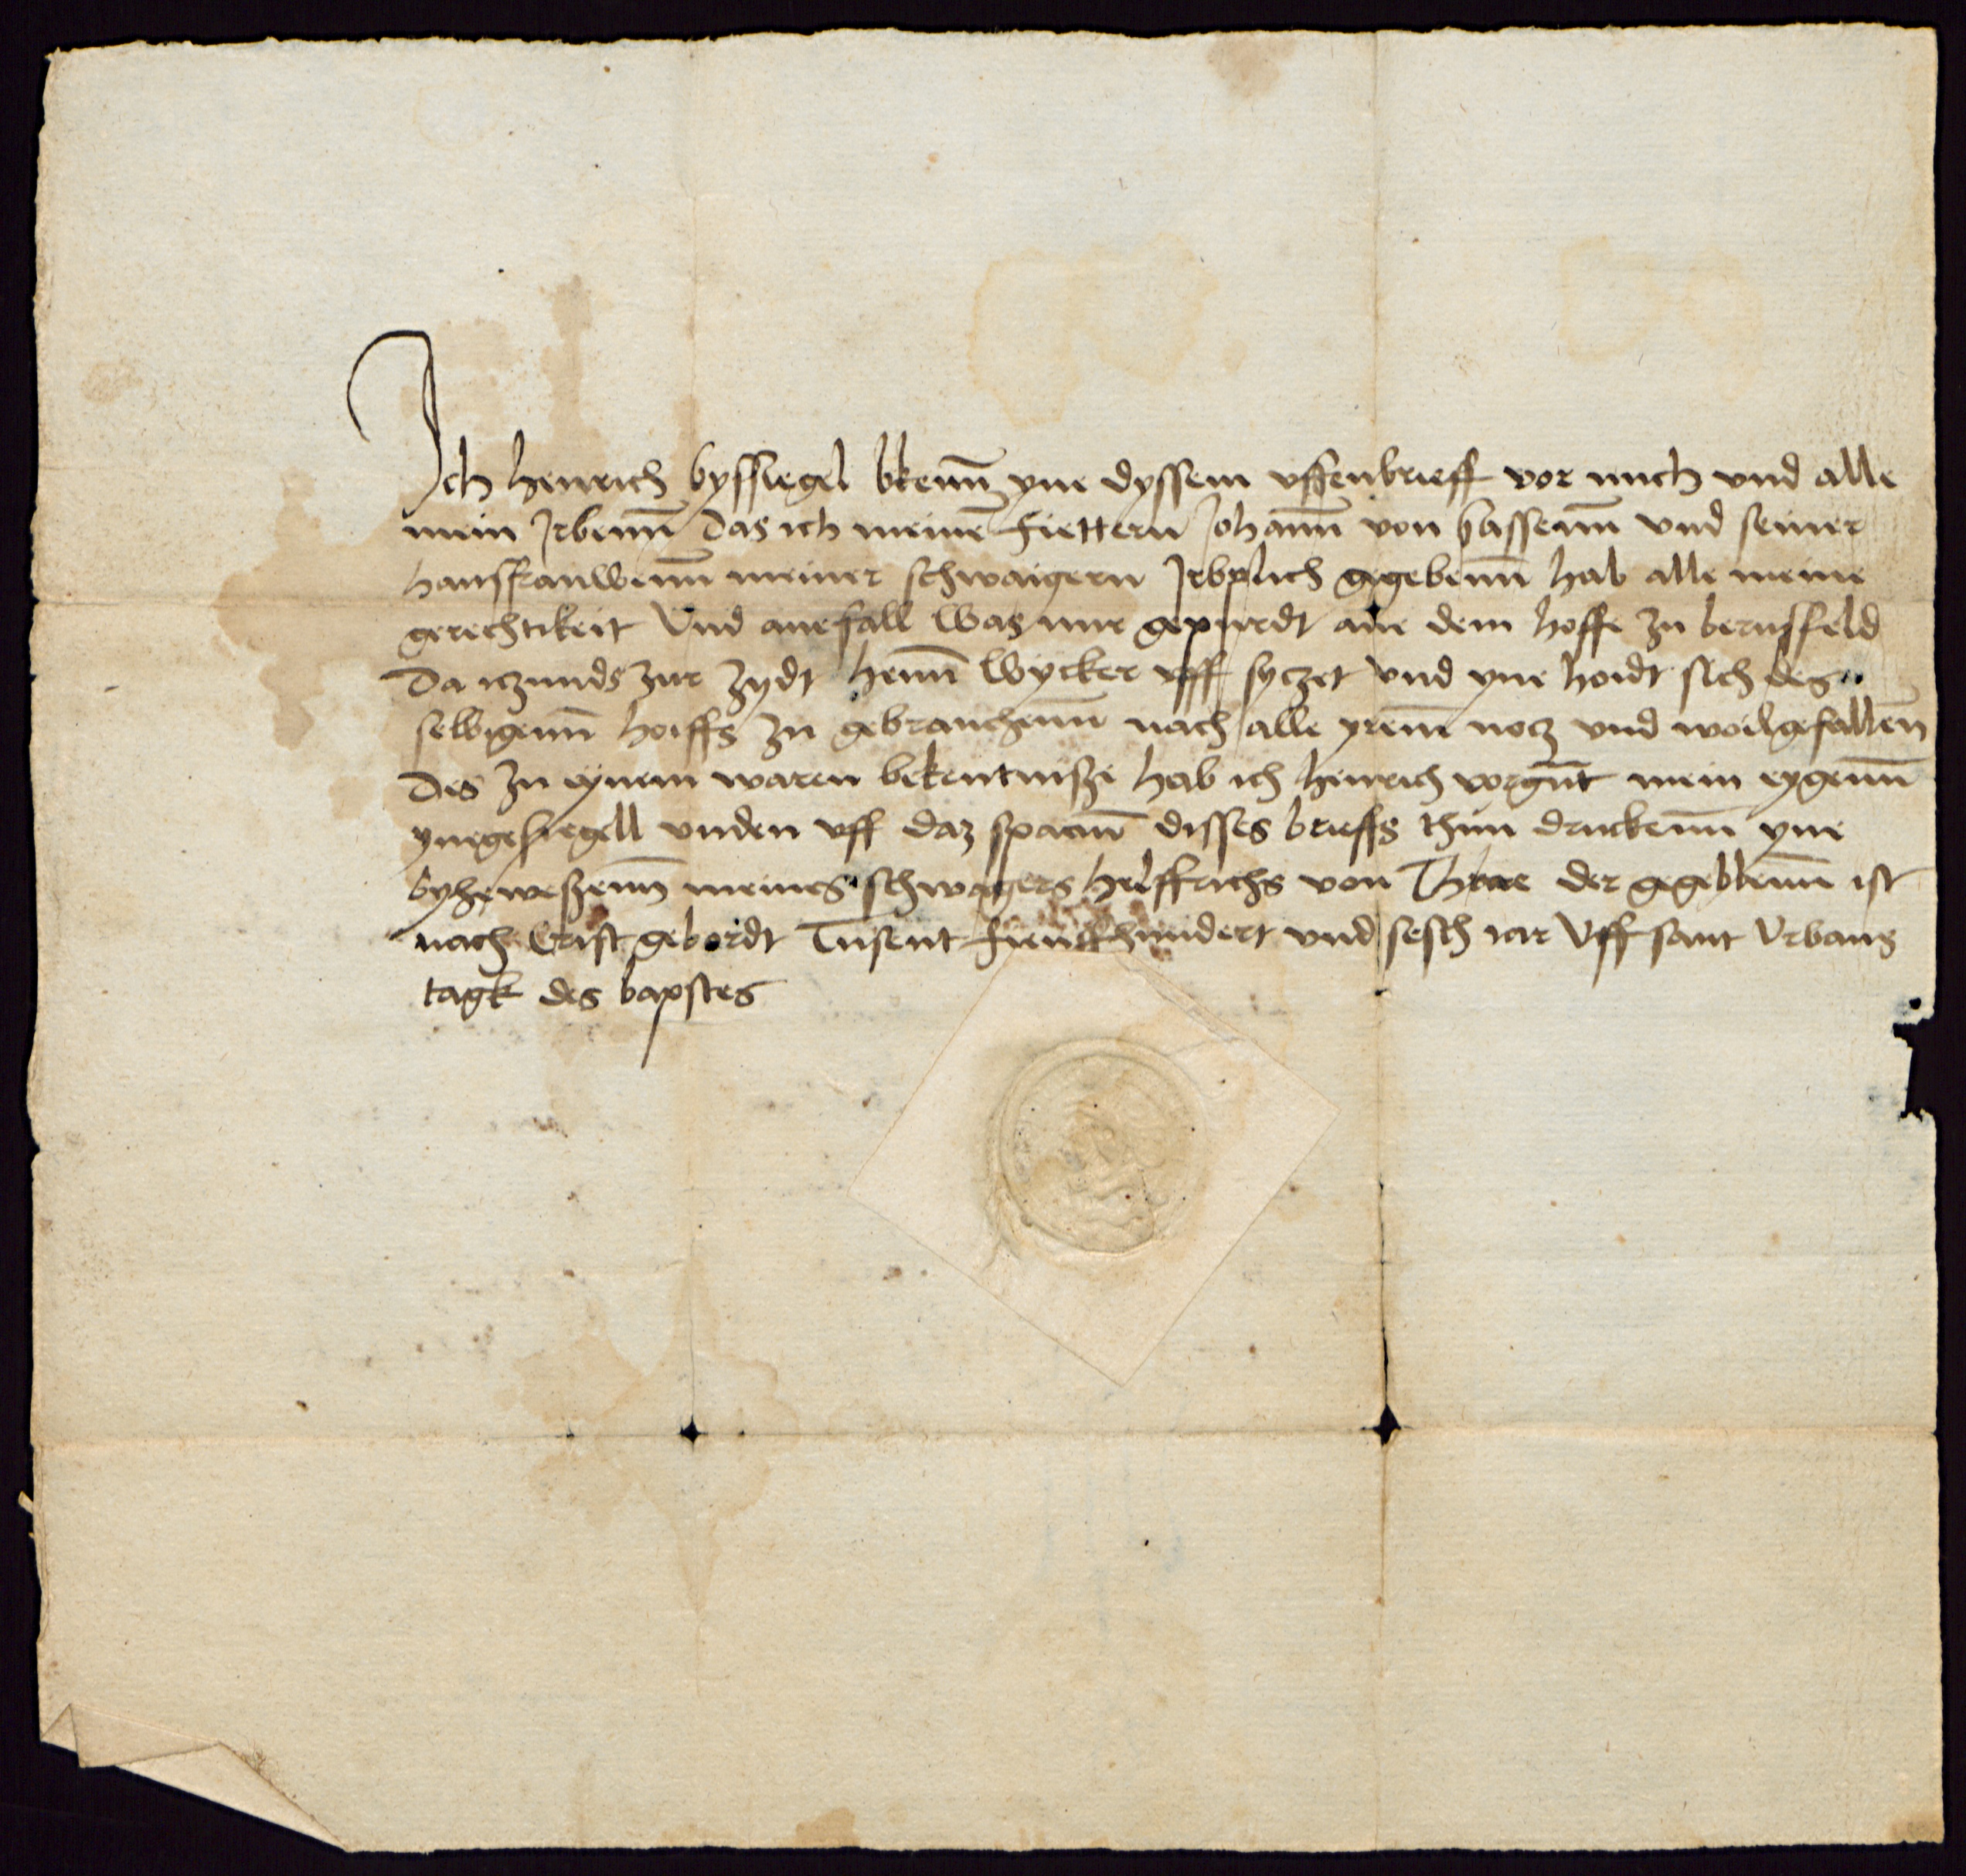 Ich henrich byssiegel bkenn yne dyssem uffenbrieff vor mich vnd alle
mein Jrbenn das ich meine fiettern Johann von hassenn vnd seiner
hausfrauwenn meiner schwaigern Jrbplich gegebenn hab alle meine
gerechtikeit Vnd anefall was mir gepurdt ane dem hoffe zu bernsfeld
Da iczunds zur zydt henn wycker uff syczet vnd yne hoidt sich des
selbigenn hoiffs zu gebrauchenn nach alle yrem nocz vnd woilgefallen
Des zu eynem waren bekentnisze hab ich henrich vorgnt mein eygenn
yngesiegell vnden vff daz spacium disses brieffs thun druckenn yne
byheweszenn meines schwagers helffrichs von Thrae der gegeblenn ist
nach Crist gebordt Tusent fiendthundert vnd sesch iar Vff sant Vrbans
tagk des bapstes